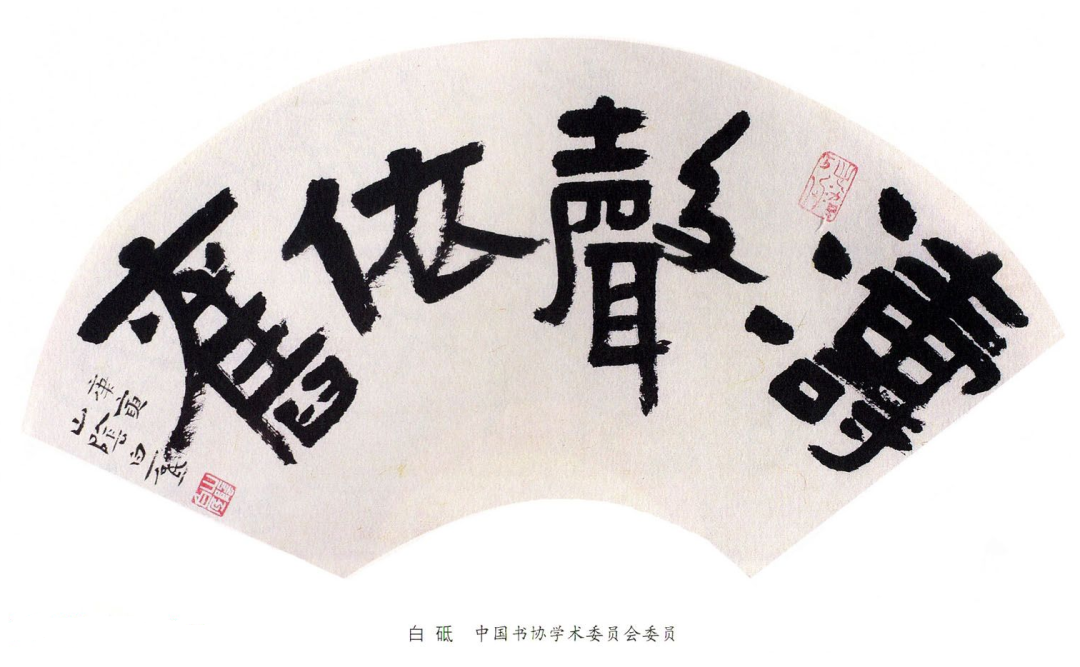 濤聲依舊
庚寅
山陰白砥
白砥 中国书协学术委员会委员